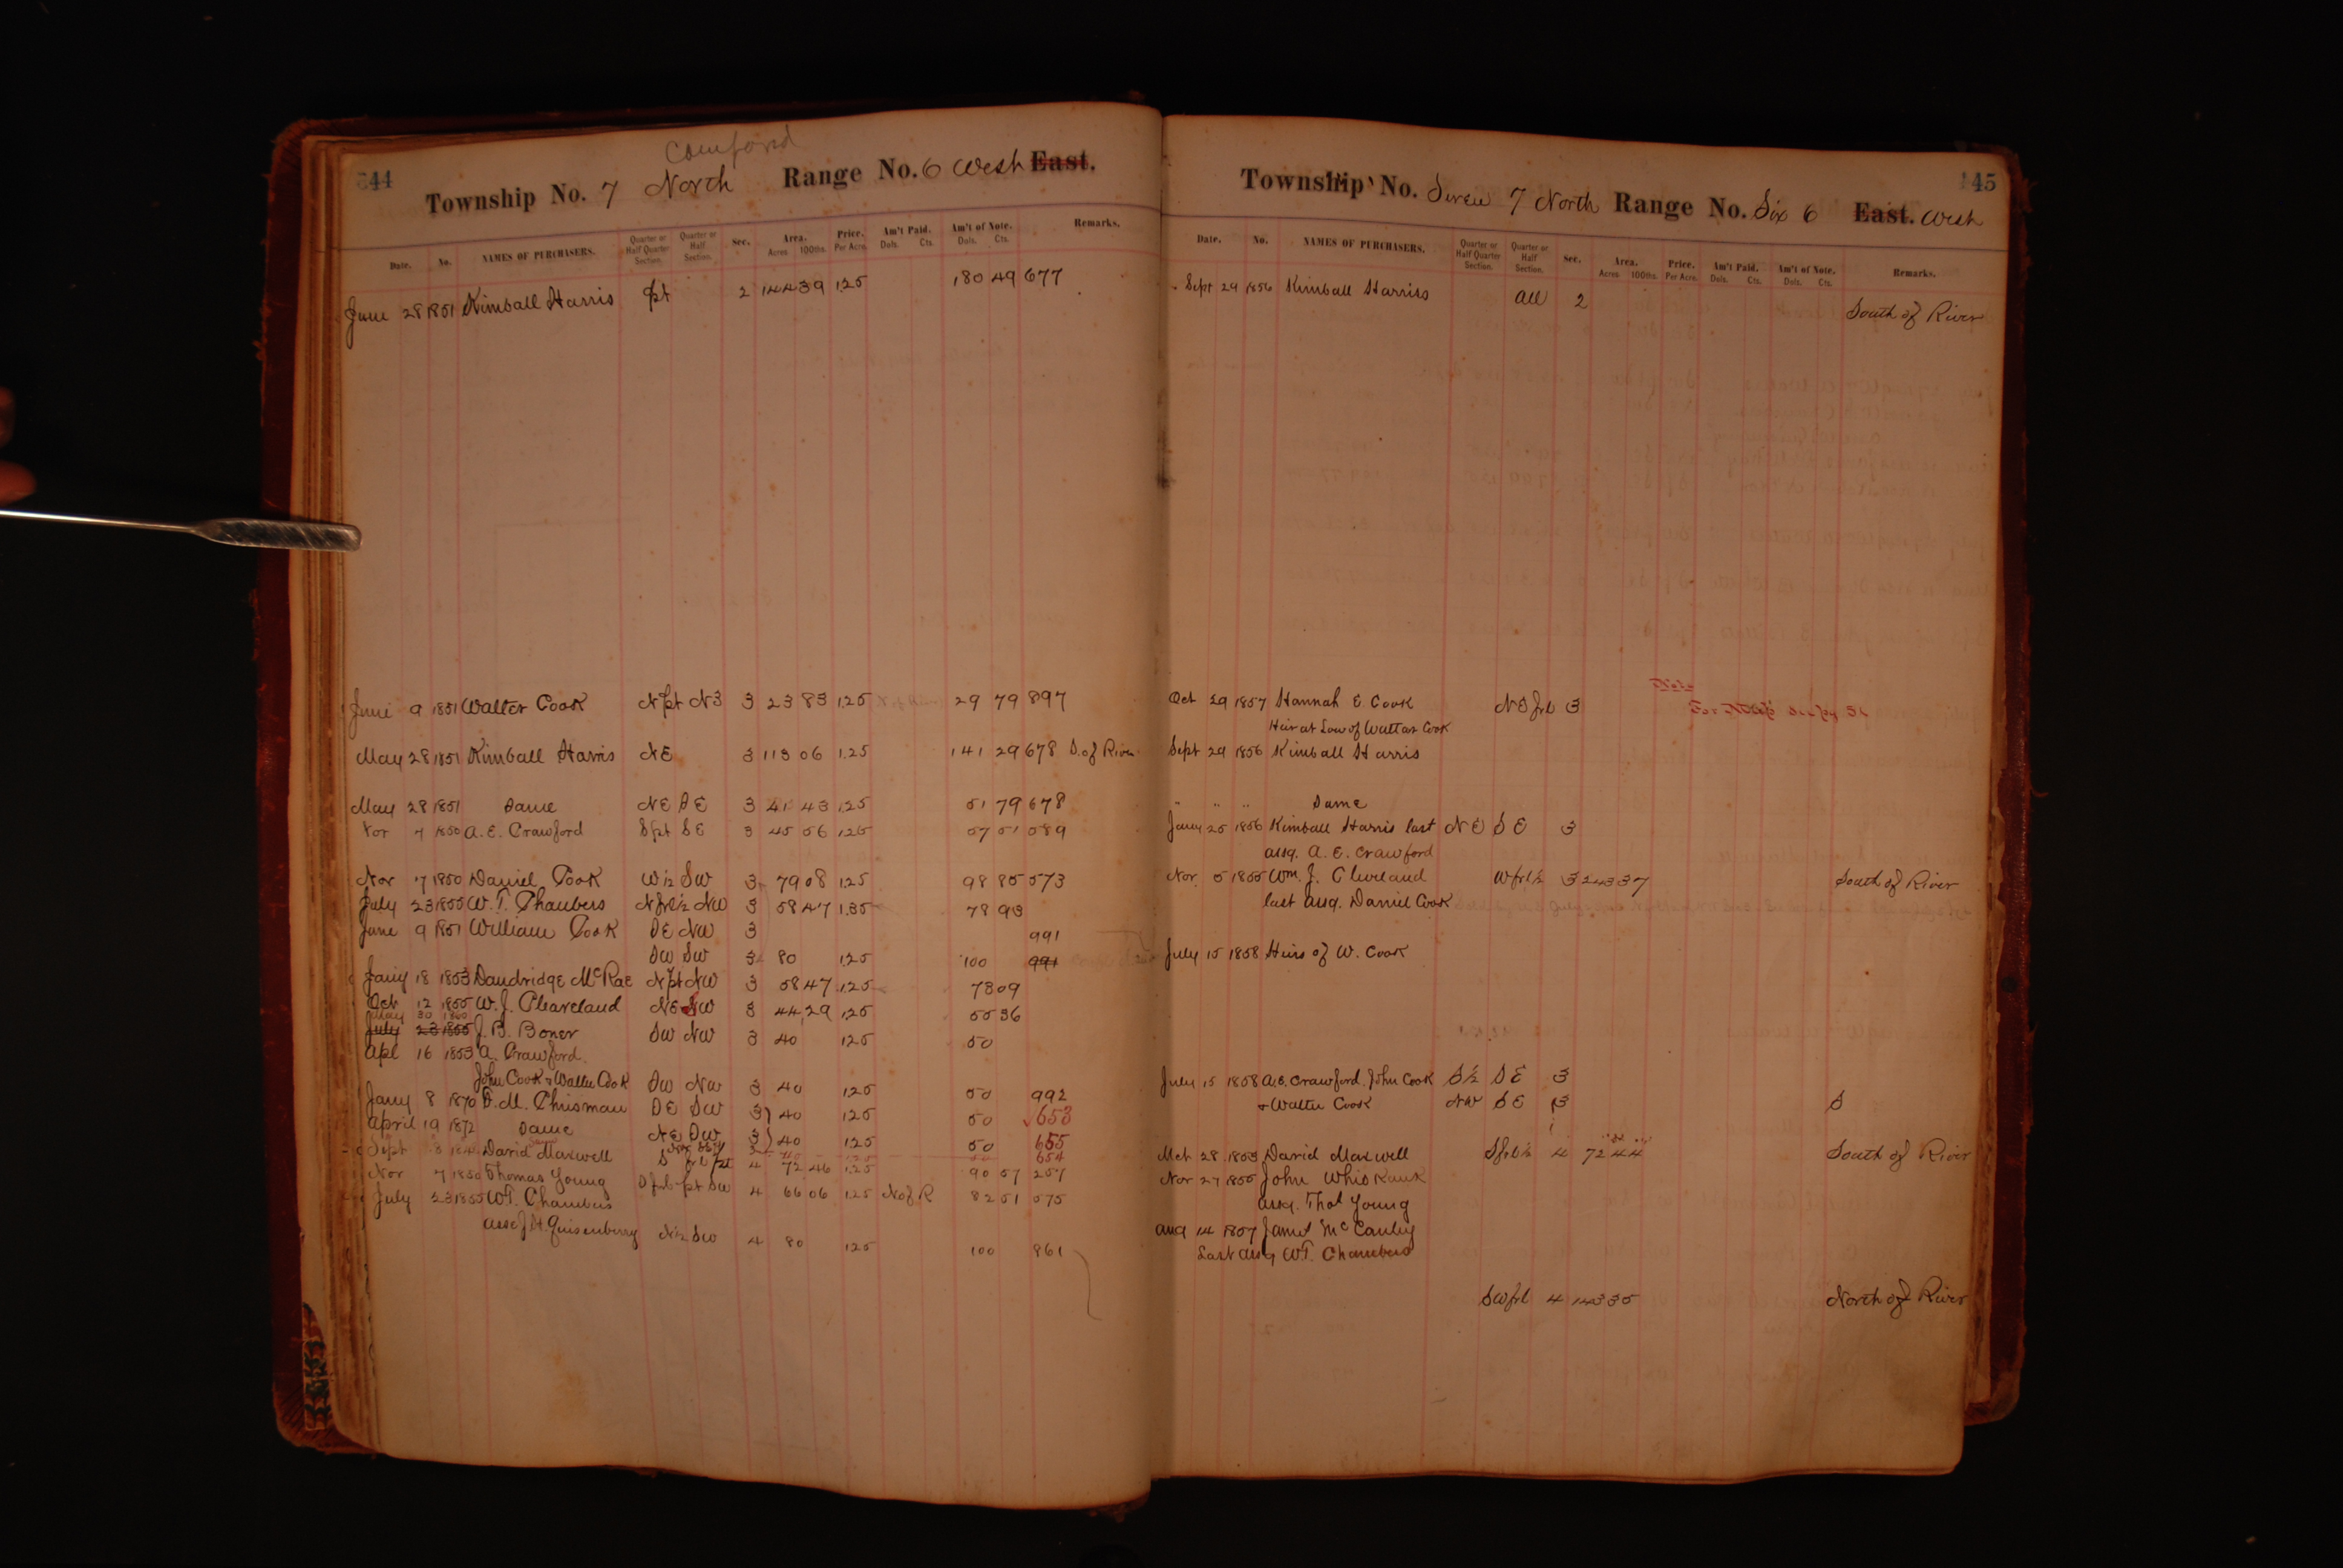 144
Comford
Township No. 7 North Range No. 6 West East.
Date. No. NAMES OF PURCHASERS. Quarter or Half Quarter Section. Quarter or Half Section. Sec. Area. Acres 100ths. Price. Per Acre. Am't Paid. Dols. Cts. Am't of Note. Dols. Cts. Remarks.
June 28 1851 Kimball Harris pt 2 144 39 125 180 49 677
June 9 1851 Walter Cook N pt NE 3 23 83 125 29 79 897
May 28 1851 Kimball Harris NE 3 113 06 1.25 141 29 678 S. of River
May 28 1851 Same NE SE 3 41 43 125 51 79 678
Nov 7 1850 A. E. Crawford S pt SE 3 45 56 125 57 51 589
Nov 7 1850 Daniel Cook W 1/2 SW 3 79 08 125 98 85 573
July 23 1855 W. T. Chambers N frl 1/2 NW 3 58 47 1.35 78 93
June 9 1851 William Cook SE NW 3 991
SW SW 3 80 125 100 991
Jany 18 1853 Dandridge McRae N pt NW 3 58 47 125 73 09
Oct 12 1855 W. J. Cleaveland NE SW 3 44 29 125 55 36
May 30 1860
July 23 1855 J. B. Boner SW NW 3 40 125 50
Apl 16 1853 A. Crawford
John Cook & Walter Cook SW NW 3 40 125 50 992
Jany 8 1870 D. M. Chrisman SE SW 3 40 125 50 653
April 19 1872 Same NE SW 3 40 125 50 655
654
Sept David Maxwell S frl pt 4 72 46 125 90 57 257
Nov 7 1850 Thomas Young S frl pt SW 4 66 06 125 N of R 82 51 575
July 23 1855 W. T. Chambers
asse J. H. Quisenberry N 1/2 SW 4 80 125 100 861
145
Township No. Seven 7 North Range No. Six 6 East. West
Date. No. NAMES OF PURCHASERS. Quarter or Half Quarter Section. Quarter or Half Section. Sec. Area. Acres 100ths. Price. Per Acre. Am't Paid. Dols. Cts. Am't of Note. Dols. Cts. Remarks.
Sept 29 1856 Kimball Harris All 2 South of River
Note
Oct 29 1857 Hannah E. Cook NE frl 3 For Note see pg
Heir at Law of Walter Cook
Sept 29 1856 Kimball Harris
" " " Same
Jany 25 1856 Kimball Harris last NE SE 3
assg. A. E. Crawford
Nov 5 1855 Wm. J. Cleveland W frl 1/2 3 243 37 South of River
last assg. Daniel Cook
July 15 1858 Heirs of W. Cook
July 15 1858 A. E. Crawford, John Cook S 1/2 SE 3
& Walter Cook NW SE 3 S
Oct 28 1853 David Maxwell S frl 1/2 4 72 44 South of River
Nov 27 1855 John Whiskauk
assg. Thos Young
Aug 14 1857 James McCauley
Last assg W. T. Chambers
SW frl 4 143 35 North of River